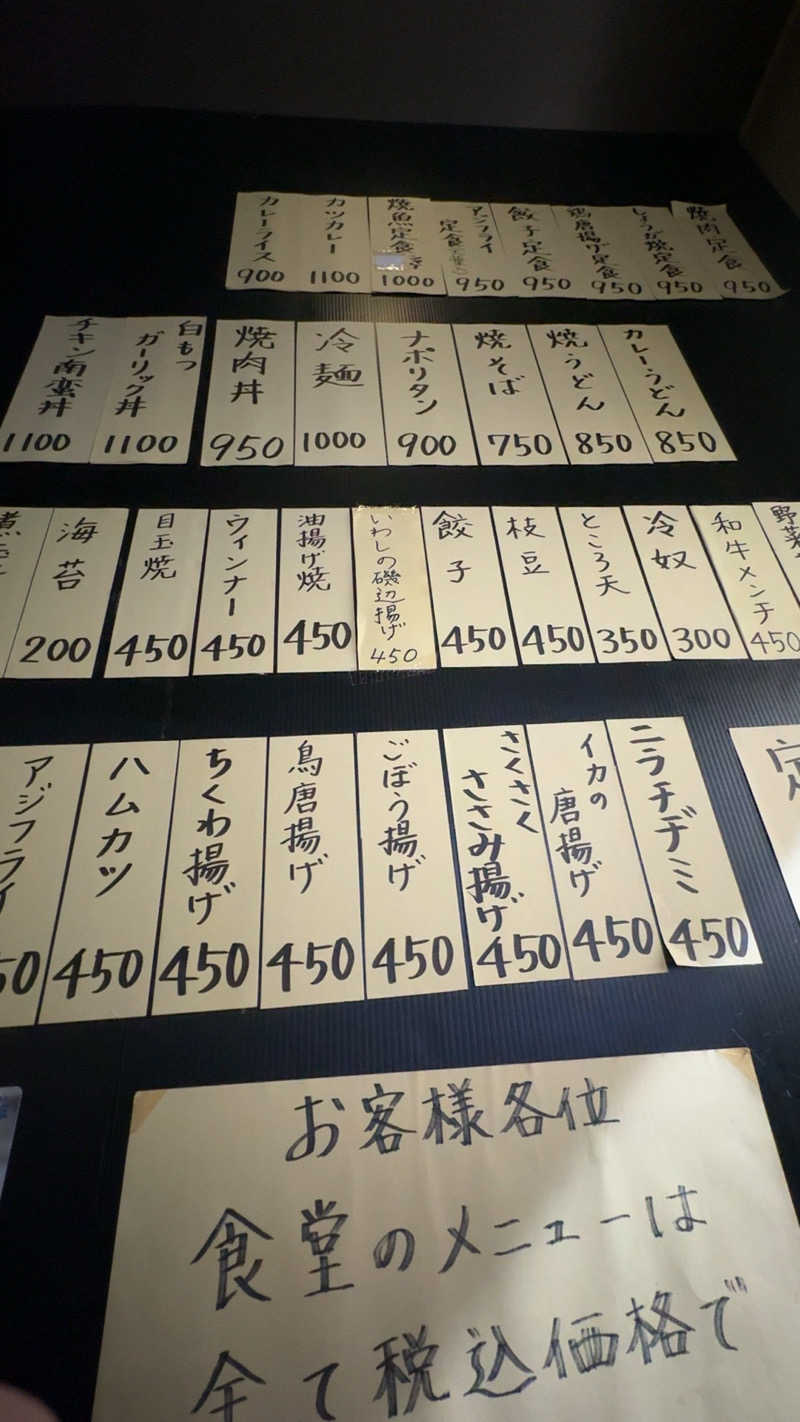 焼肉定食 950
しょうが焼定食 950
鶏唐揚げ定食 950
餃子定食 950
アジフライ定食 950
焼魚定食 1000
カツカレー 1100
カレーライス 900
カレーうどん 850
焼うどん 850
焼そば 750
ナポリタン 900
冷麺 1000
焼肉丼 950
白もつガーリック丼 1100
チキン南蛮丼 1100
野菜
和牛メンチ 450
冷奴 300
ところ天 350
枝豆 450
餃子 450
いわしの磯辺揚げ 450
油揚げ焼 450
ウィンナー 450
目玉焼 450
海苔 200
ニラチヂミ 450
イカの唐揚げ 450
さくさくささみ揚げ 450
ごぼう揚げ 450
鳥唐揚げ 450
ちくわ揚げ 450
ハムカツ 450
アジフライ 50
お客様各位
食堂のメニューは
全て税込価格で